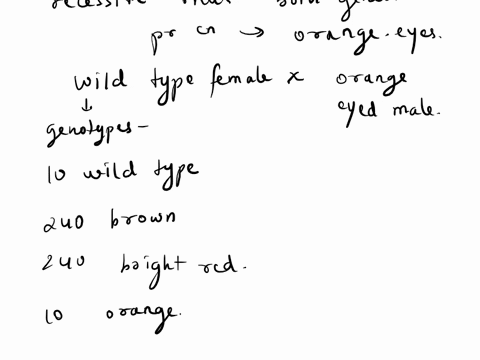 recessive that both gen
pr cn → orange eyes.
wild type female x orange
eyed male.
↓
genotypes -
10 wild type
240 brown
240 bright red.
10 orange.